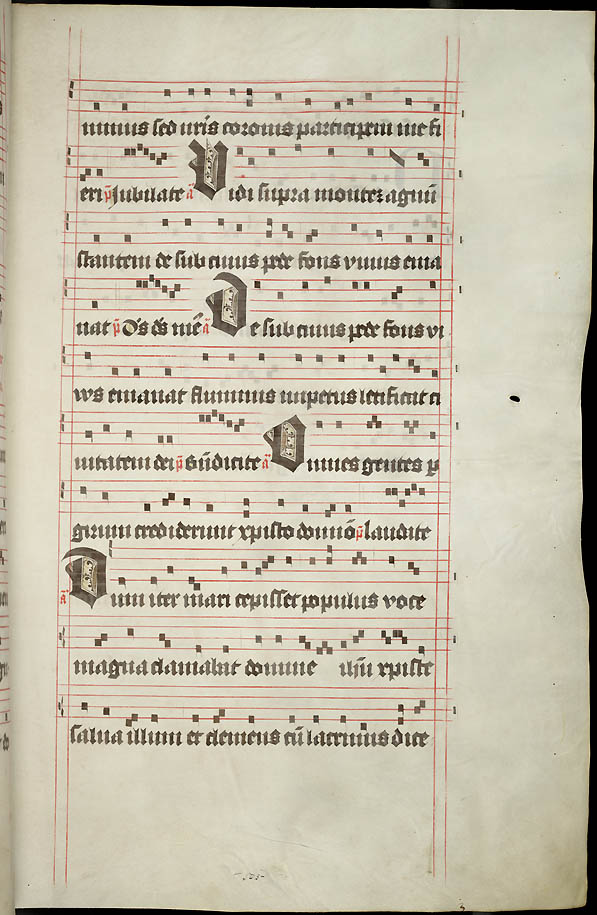 mimus sed uris coronis participem me fi
eri p̄ Jubilate ā Vidi supra montez agnū
stantem de sub cuius pede fons viuus ema
nat p̄ Ds ds mē ā De sub cuius pede fons vi
vus emanat fluminis impetus letificat ci
uitatem dei p̄ Bn̄dicite ā Omnes gentes p
girum crediderunt xpisto domīo p̄ laudate
ā Dum iter mari cepisset populus voce
magna clamabat domine ihū xpiste
salua illum et clemens cū lacrimis dice